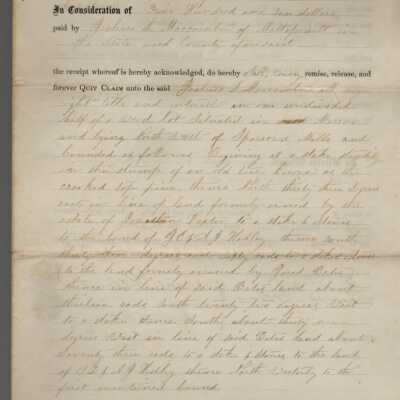 In Consideration of One Hundred and ten dollars
paid by Joshua L Macomber of Mattapoisett in
the State and County aforesaid
the receipt whereof is hereby acknowledged, do hereby remise, release, and
forever QUIT CLAIM unto the said Joshua L Macomber all my
right title and interest in one undivided
half of a wood lot situated in Marion
and lying North West of Sparrow Mills and
bounded as follows Beginning at a stake
in the stump of an old tree known as the
crooked top pine thence North thirty three degrees
east in line of land formerly owned by the
estate of to a stake & Stones
to the land of & A J Hadley thence south
thirty degrees and rods to a stake Stones
to the land formerly owned by Bates
thence in line of said Bates land about
thirteen rods south twenty two degrees West
to a stake stones South about thirty
degrees West in line of said Bates land about
Seventy three rods to a stake & stones to the land
of & A J Hadley thence North Westerly to the
first mentioned bound